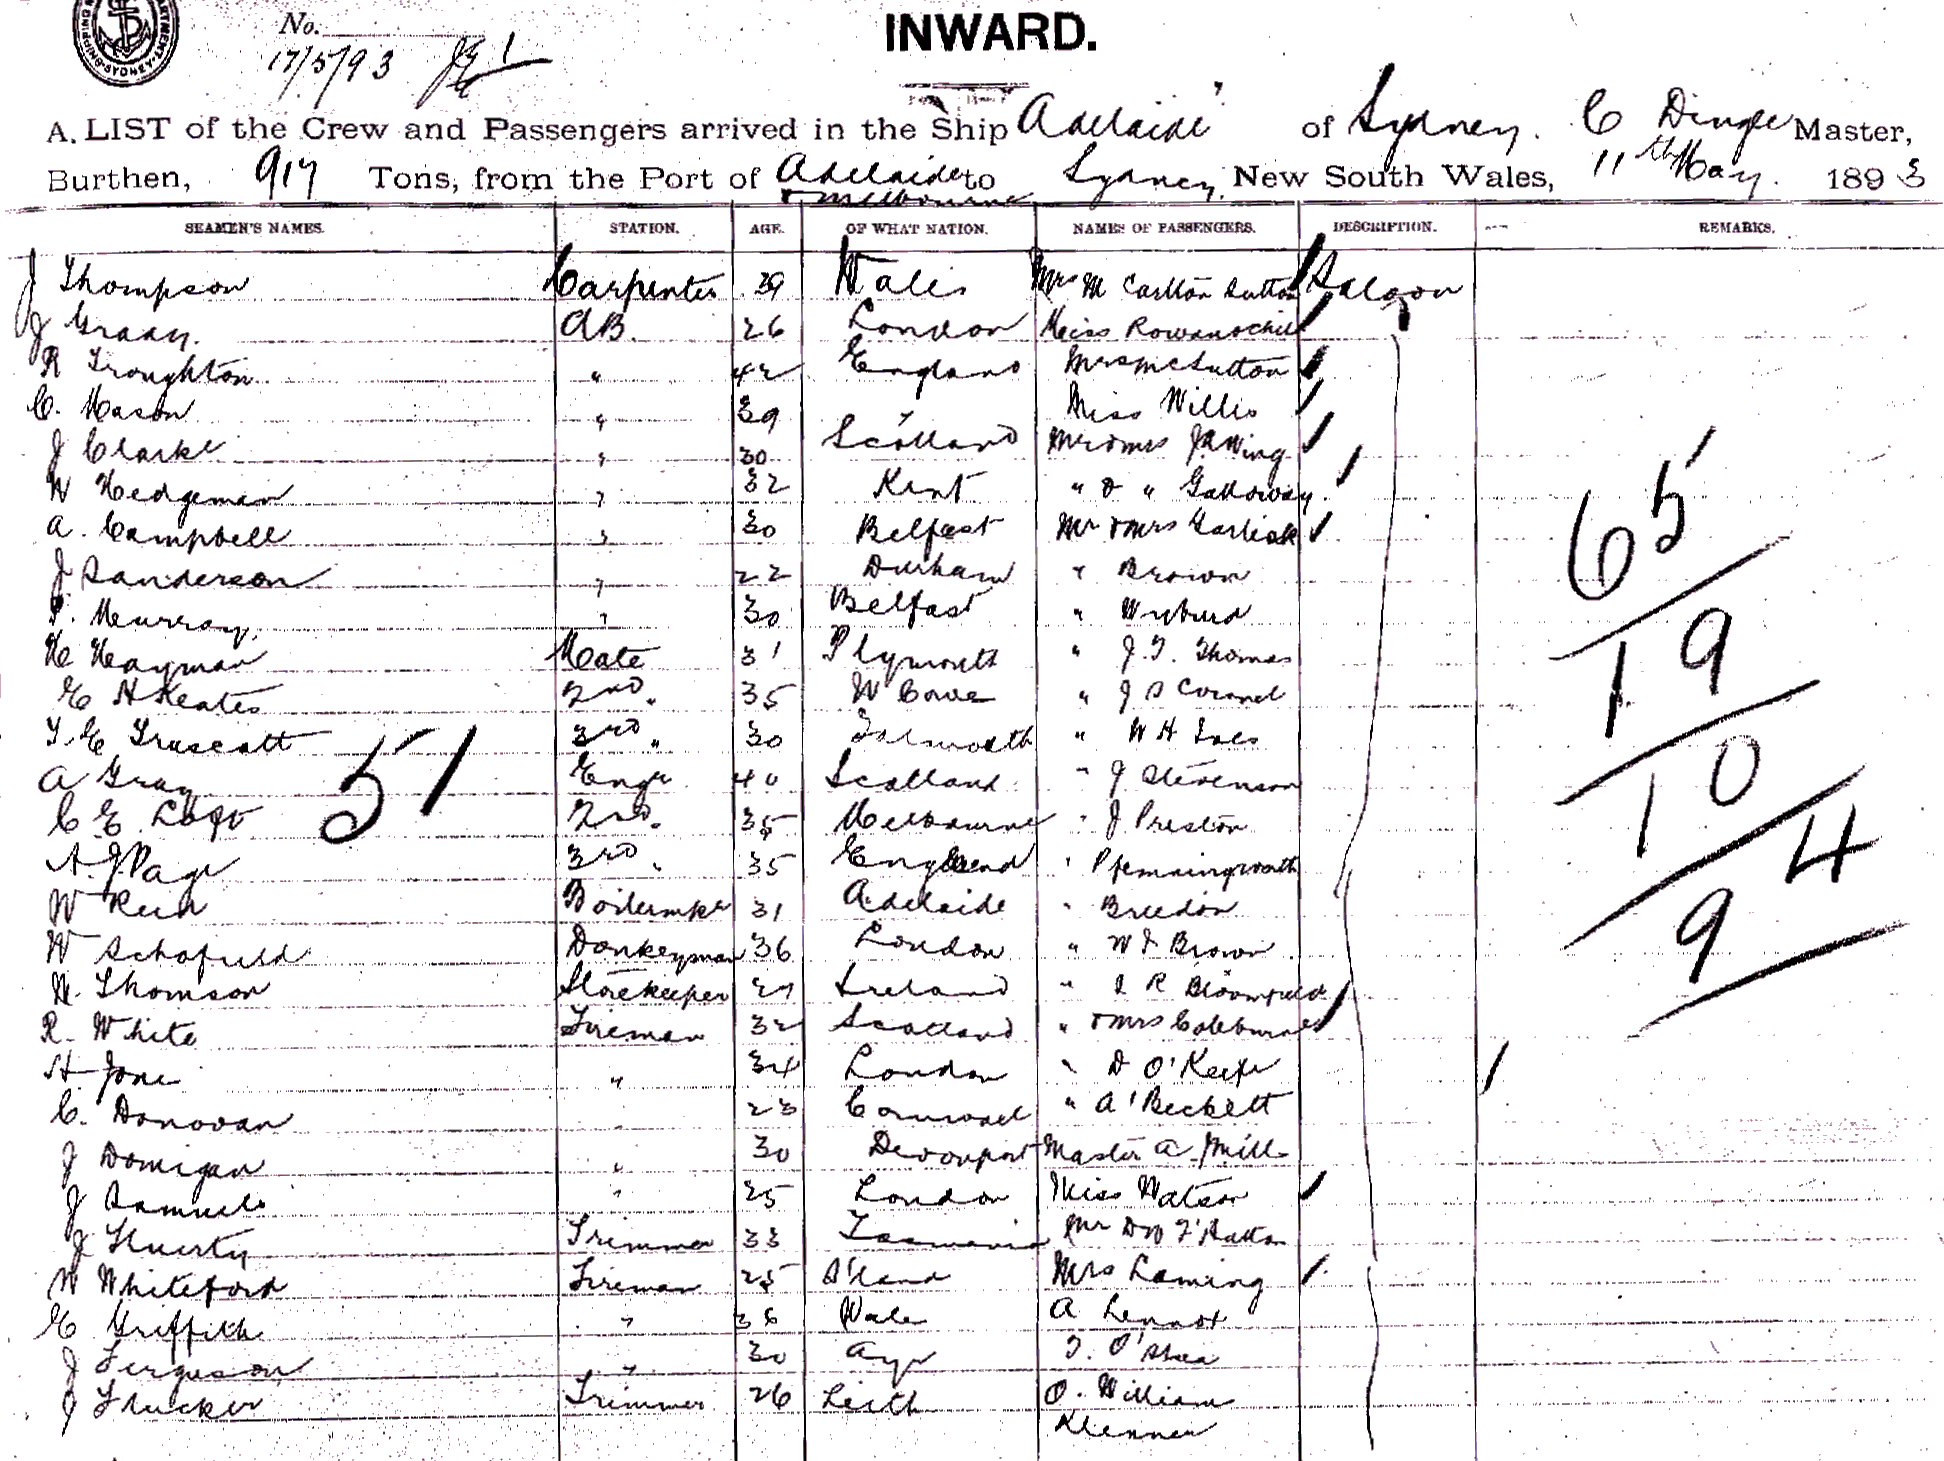 No.
17/5/93
INWARD.
A. LIST of the Crew and Passengers arrived in the Ship Adelaide" of Sydney. C Master,
Burthen, 917 Tons, from the Port of Adelaide to Sydney, New South Wales, 11th May. 1893
& Melbourne
SEAMEN'S NAMES. STATION. AGE. OF WHAT NATION. NAMES OF PASSENGERS. DESCRIPTION. REMARKS.
J Thompson Carpenter 39 Wales Mrs M Carlton Sutton Saloon
J Grady. AB. 26 London Miss
R Troughton " 42 England Mrs Mc Sutton
C. Mason " 39 Miss Willis
J Clarke " 30 Scotland Mr & Mrs Wing
W Hedgeman " 32 Kent " & " Galloway.
A. Campbell " 30 Belfast Mr & Mrs Garlick
J Sanderson " 22 Durham " Brown
P. Murray. " 30 Belfast "
H Hayman Mate 31 Plymouth " J. T. Thomas
E H Keates 2nd " 35 W " J S
T. E Truscott 3rd " 30 Falmouth " W H
A Gray Engr 40 Scotland. " J Stevenson
C E 2nd " 35 Melbourne " J Preston
A. J. Page 3rd " 35 England "
W Reid Boilermkr 31 Adelaide " Breedon
W Schofield Donkeyman 36 London " Brown
Thomson Storekeeper 27 Ireland " R Bloomfield
R. White Fireman 32 Scotland " & Mrs
H Jone " 34 London " D O'Keefe
C. Donovan " 23 " A'Beckett
J Domigan " 30 Devonport Master A. Mill
J Samuels " 25 London Miss Watson
J Trimmer 33 Tasmania Mr
W Whiteford Fireman 25 S'land Mrs Laming
E Griffith " 36 Wale A Lennox
J Ferguson " 30 Ayr T. O'Shea
J Trimmer 26 Leith O. William
Klenner
51
65
19
10
4
9